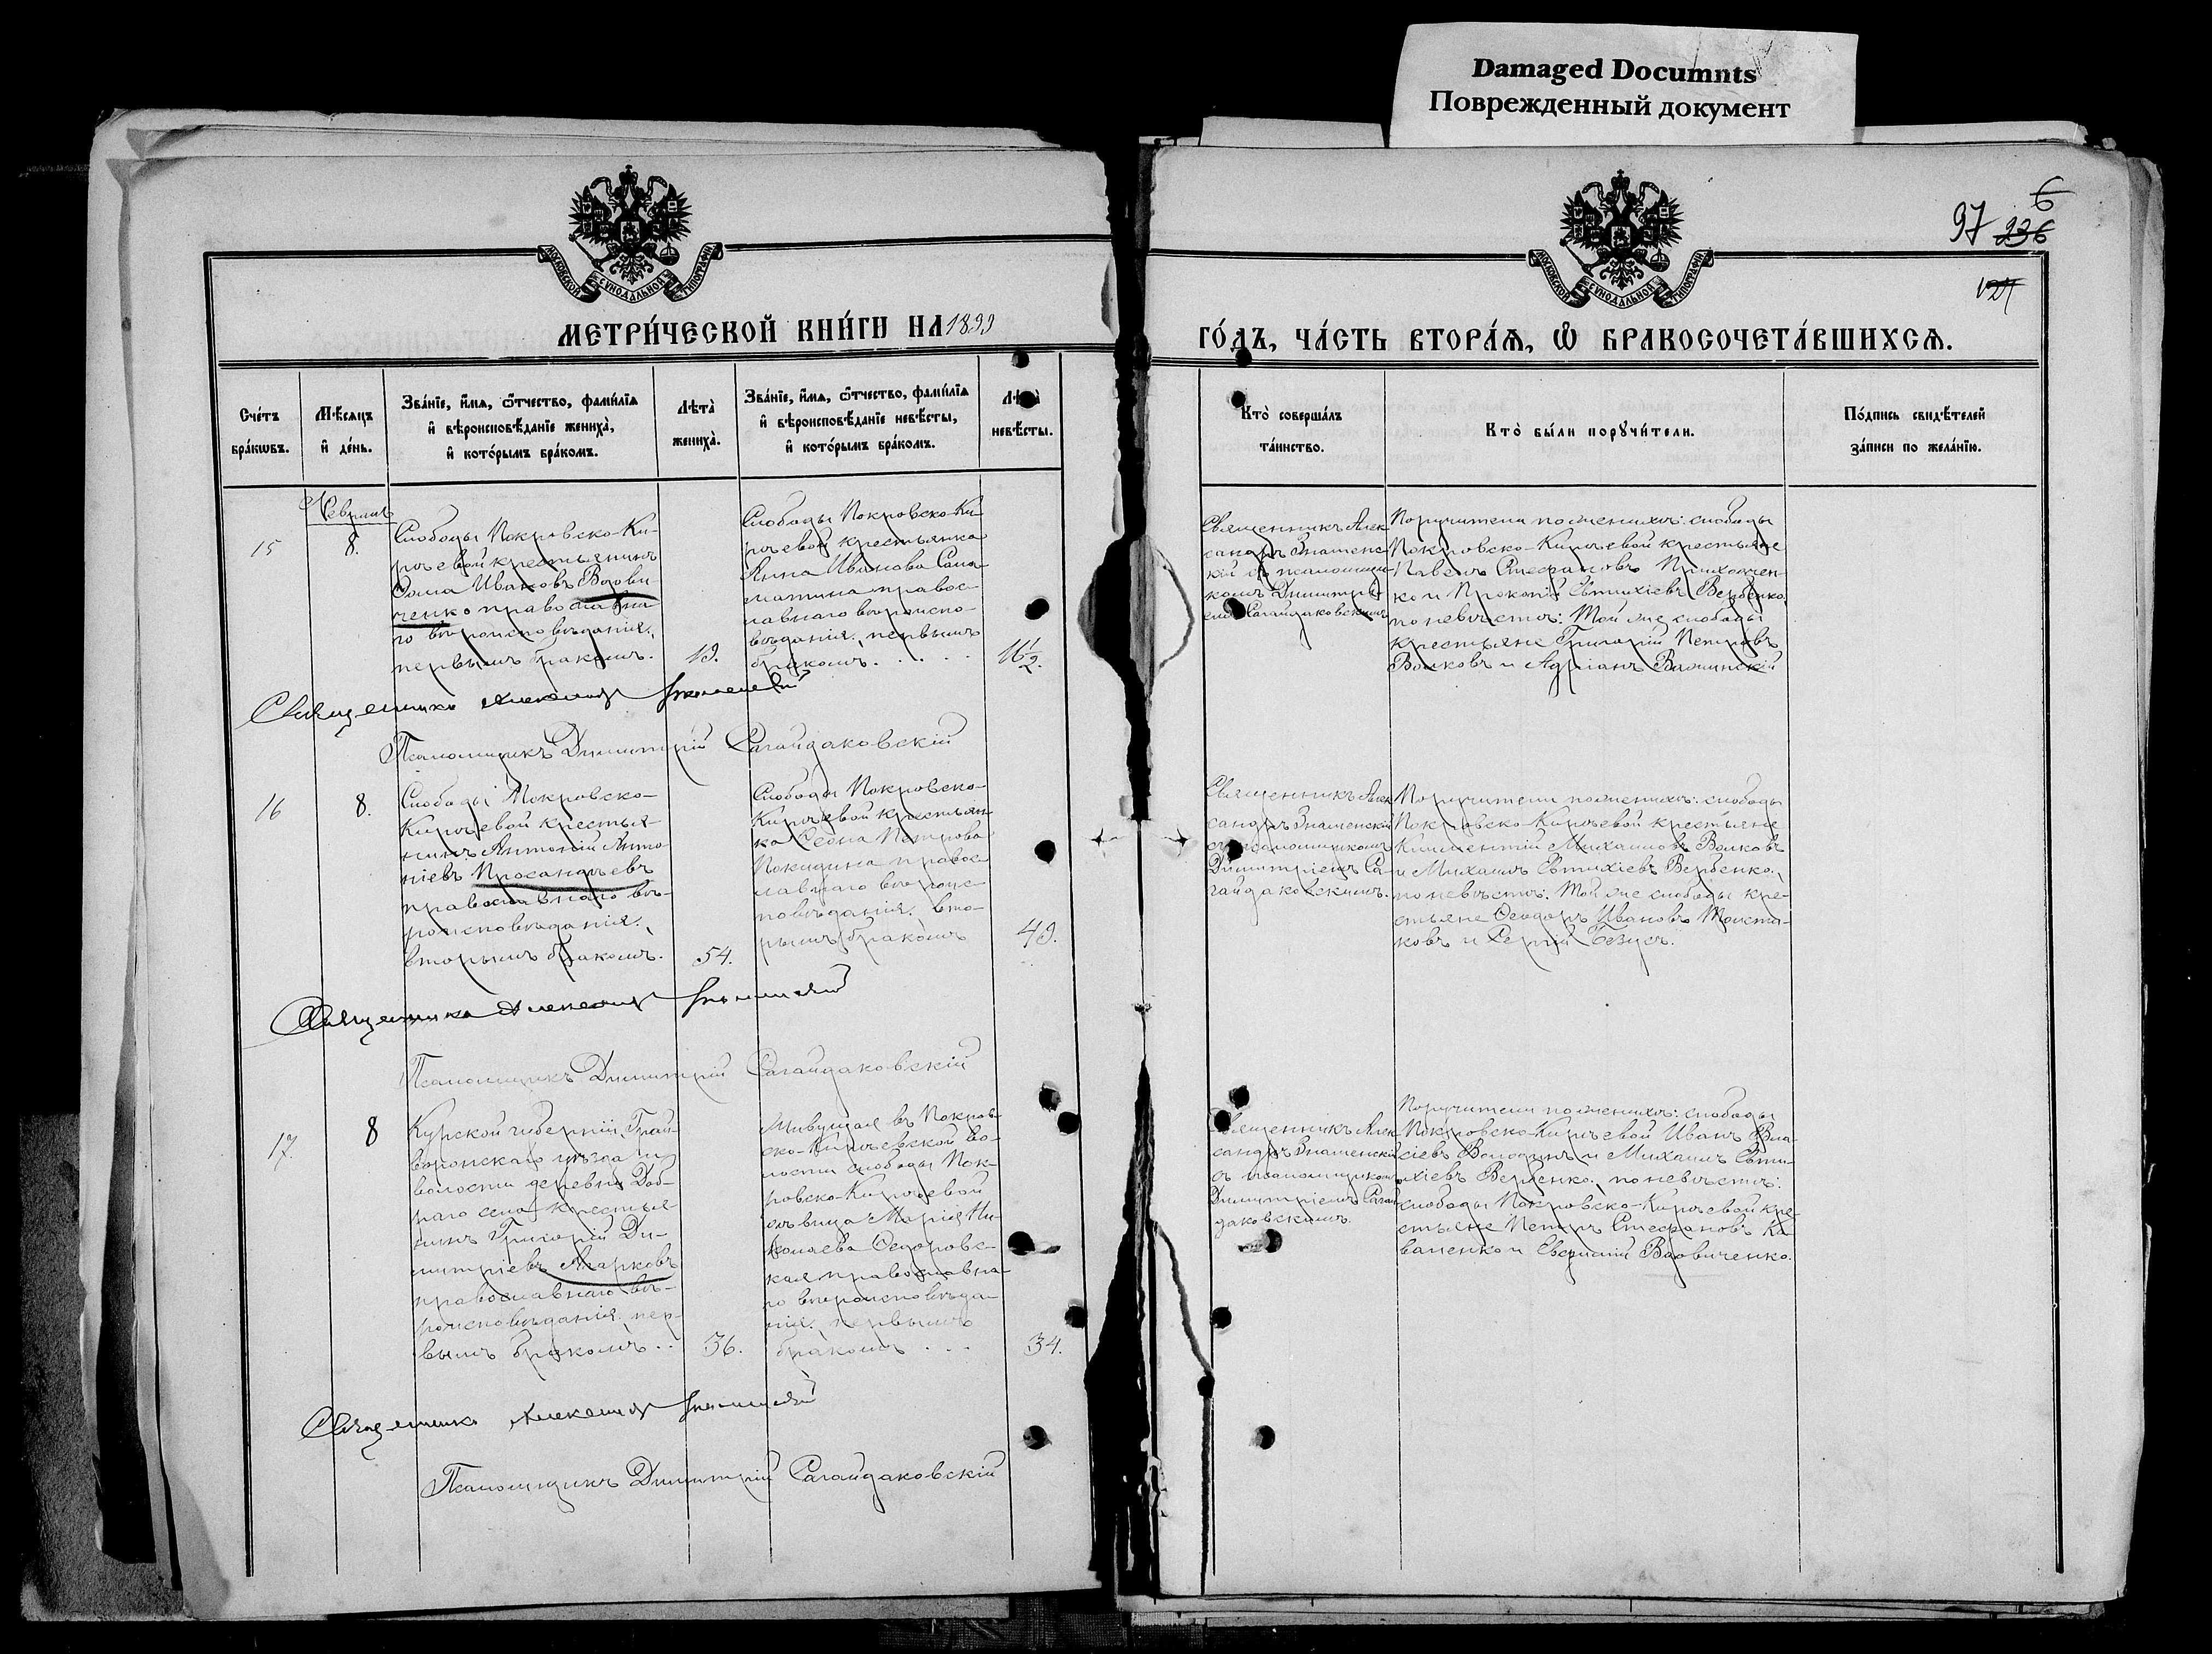 Damaged Documnts
Поврежденный документ
6
97 236
МОСКОВСКОЙ СѴНОДАЛЬНОЙ ТИПОГРАФІИ
МОСКОВСКОЙ СѴНОДАЛЬНОЙ ТИПОГРАФІИ
МЕТРИ́ЧЕСКОЙ КНИ́ГИ НА 1899
ГО́ДЪ, ЧА́СТЬ ВТОРА́Ѧ, Ѽ БРАКОСОЧЕТА́ВШИХСѦ.
Сче́тъ
бра́кѡвъ.
Мѣ́сяцъ
и҆ де́нь.
Зва́нїе, и҆́мѧ, ѻ҆́тчество, фами́лїѧ
и҆ вѣроисповѣ́данїе жениха̀,
и҆ кото́рымъ бра́комъ.
Лѣта̀
жениха̀.
Зва́нїе, и҆́мѧ, ѻ҆́тчество, фами́лїѧ
и҆ вѣроисповѣ́данїе невѣ́сты,
и҆ кото́рымъ бра́комъ.
невѣ́сты.
Кто̀ соверша́лъ
та́инство.
Кто̀ бы́ли порꙋчи́тели.
По́дпись свидѣ́телей
за́писи по жела́нїю.
15
Февраль
8.
Слободы Покровско-Ки-
рѣевой крестьянинъ
Ѳома Ивановъ Вдови-
ченко православна-
го вѣроисповѣданія,
первымъ бракомъ.
19.
Слободы Покровско-Ки-
рѣевой крестьянка
Анна Иванова Сало-
матина правос-
лавнаго вѣроиспо-
вѣданія, первымъ
бракомъ. . . .
16 1/2.
Священникъ Алек-
сандръ Знаменс-
кій съ псаломщи-
комъ Димитрі-
емъ Сагайдаковскимъ
Поручители по женихѣ: слободы
Покровско-Кирѣевой крестьяне
Павелъ Стефановъ Приходчен-
ко и Прокопій Евтихіевъ Вербенко,
по невѣстѣ: Той же слободы
крестьяне Григорій Петровъ
Волковъ и Адріанъ
Священникъ Александръ Знаменскій
Псаломщикъ Димитрій Сагайдаковскій
16
8.
Слободы Покровско-
Кирѣевой крестья-
нинъ Антоній Анто-
ніевъ Просандѣевъ
православнаго вѣ-
роисповѣданія,
вторымъ бракомъ.
54.
Слободы Покровско-
Кирѣевой крестьян-
ка Ѳекла Петрова
Покидина правос-
лавнаго вѣроис-
повѣданія, вто-
рымъ бракомъ
49.
Священникъ Алек-
сандръ Знаменскій
съ псаломщикомъ
Димитріемъ Са-
гайдаковскимъ.
Поручители по женихѣ: слободы
Покровско-Кирѣевой крестьяне
Климентій Михаиловъ Волковъ
и Михаилъ Евтихіевъ Вербенко,
по невѣстѣ: Той же слободы кре-
стьяне Ѳеодоръ Ивановъ Толста-
ковъ и Сергій Безусъ.
Священникъ Александръ Знаменскій
Псаломщикъ Димитрій Сагайдаковскій
17.
8
Курской губерніи, Грай-
воронскаго уѣзда и
волости деревни Доб-
раго села крестья-
нинъ Григорій Ди-
митріевъ Марковъ
православнаго вѣ-
роисповѣданія, пер-
вымъ бракомъ. .
36.
Живущая въ Покров-
ско-Кирѣевской во-
лости слободы Пок-
ровско-Кирѣевой
дѣвица Марія Ни-
колаева Ѳедоровс-
кая православна-
го вѣроисповѣда-
нія, первымъ
бракомъ . . .
34.
Священникъ Алек-
сандръ Знаменскій
съ псаломщикомъ
Димитріемъ Сагай-
даковскимъ.
Поручители по женихѣ: слободы
Покровско-Кирѣевой Иванъ Вла-
сіевъ Володинъ и Михаилъ Евти-
хіевъ Вербенко, по невѣстѣ:
слободы Покровско-Кирѣевой кре-
стьяне Петръ Стефановъ Ко-
валенко и Евгеній Вдовиченко.
Священникъ Александръ Знаменскій
Псаломщикъ Димитрій Сагайдаковскій